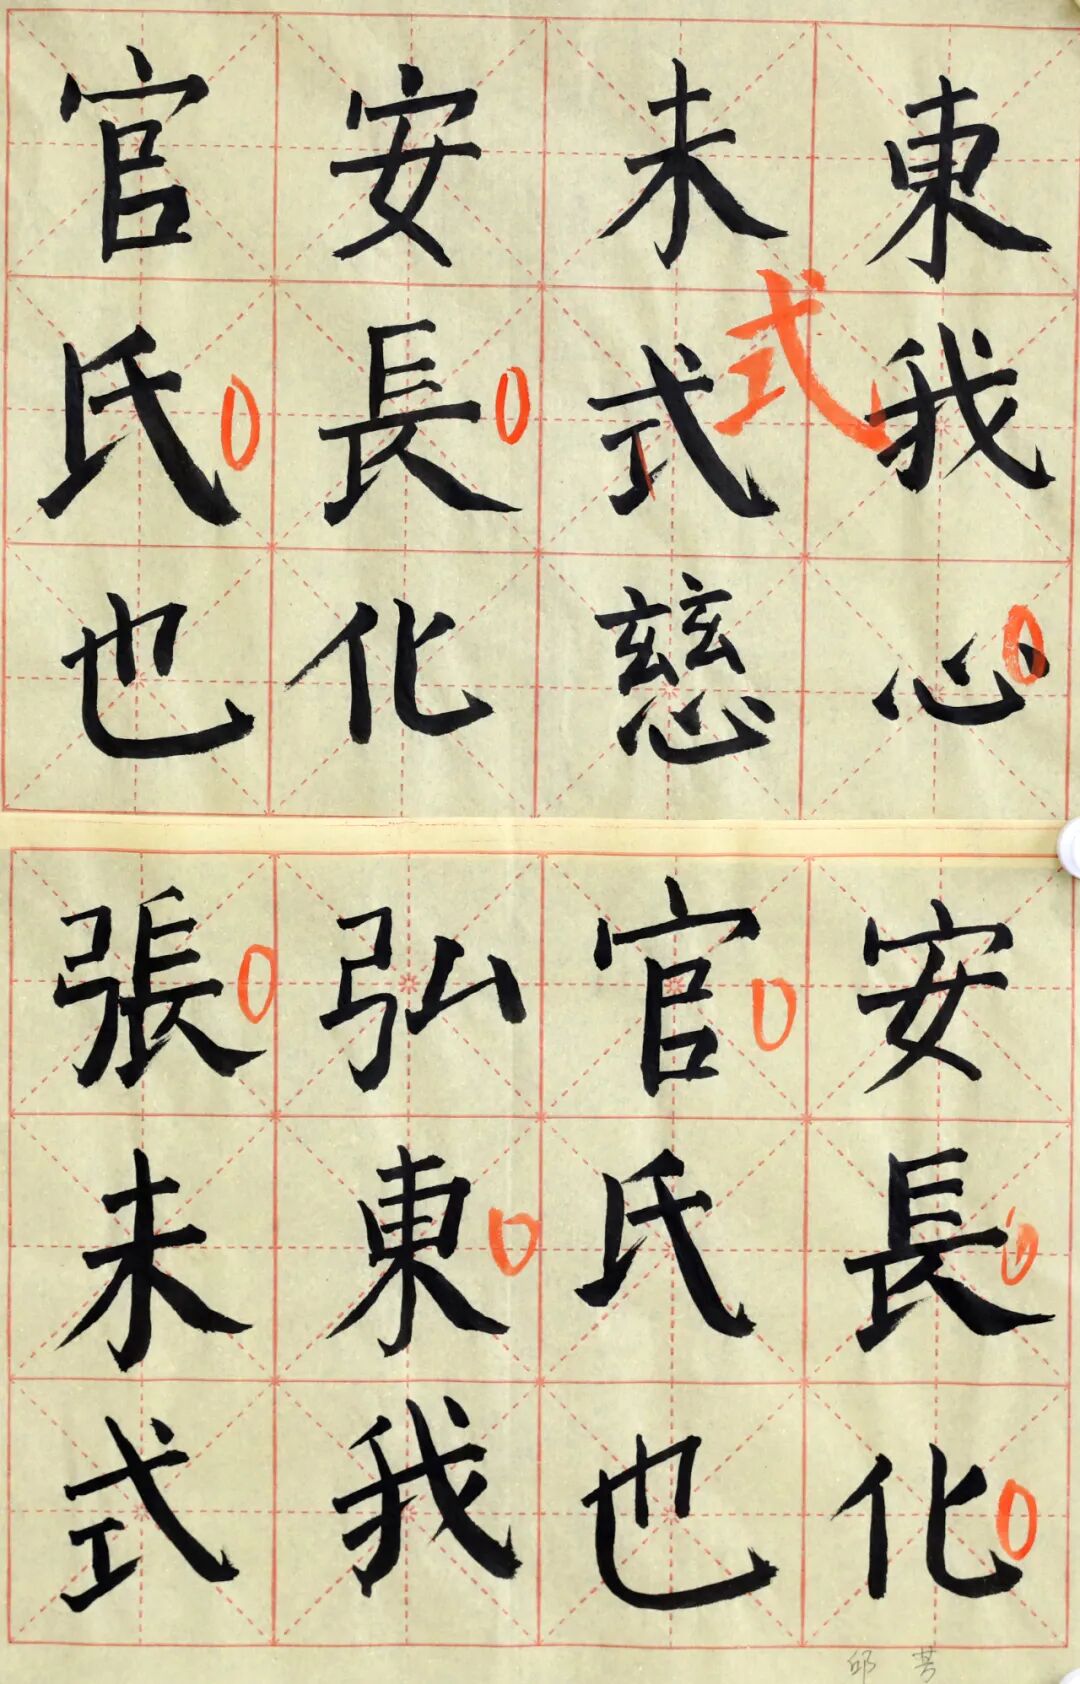 官安未東
氏長式我
式
也化慈心
張弘官安
未東氏長
式我也化
邱芳